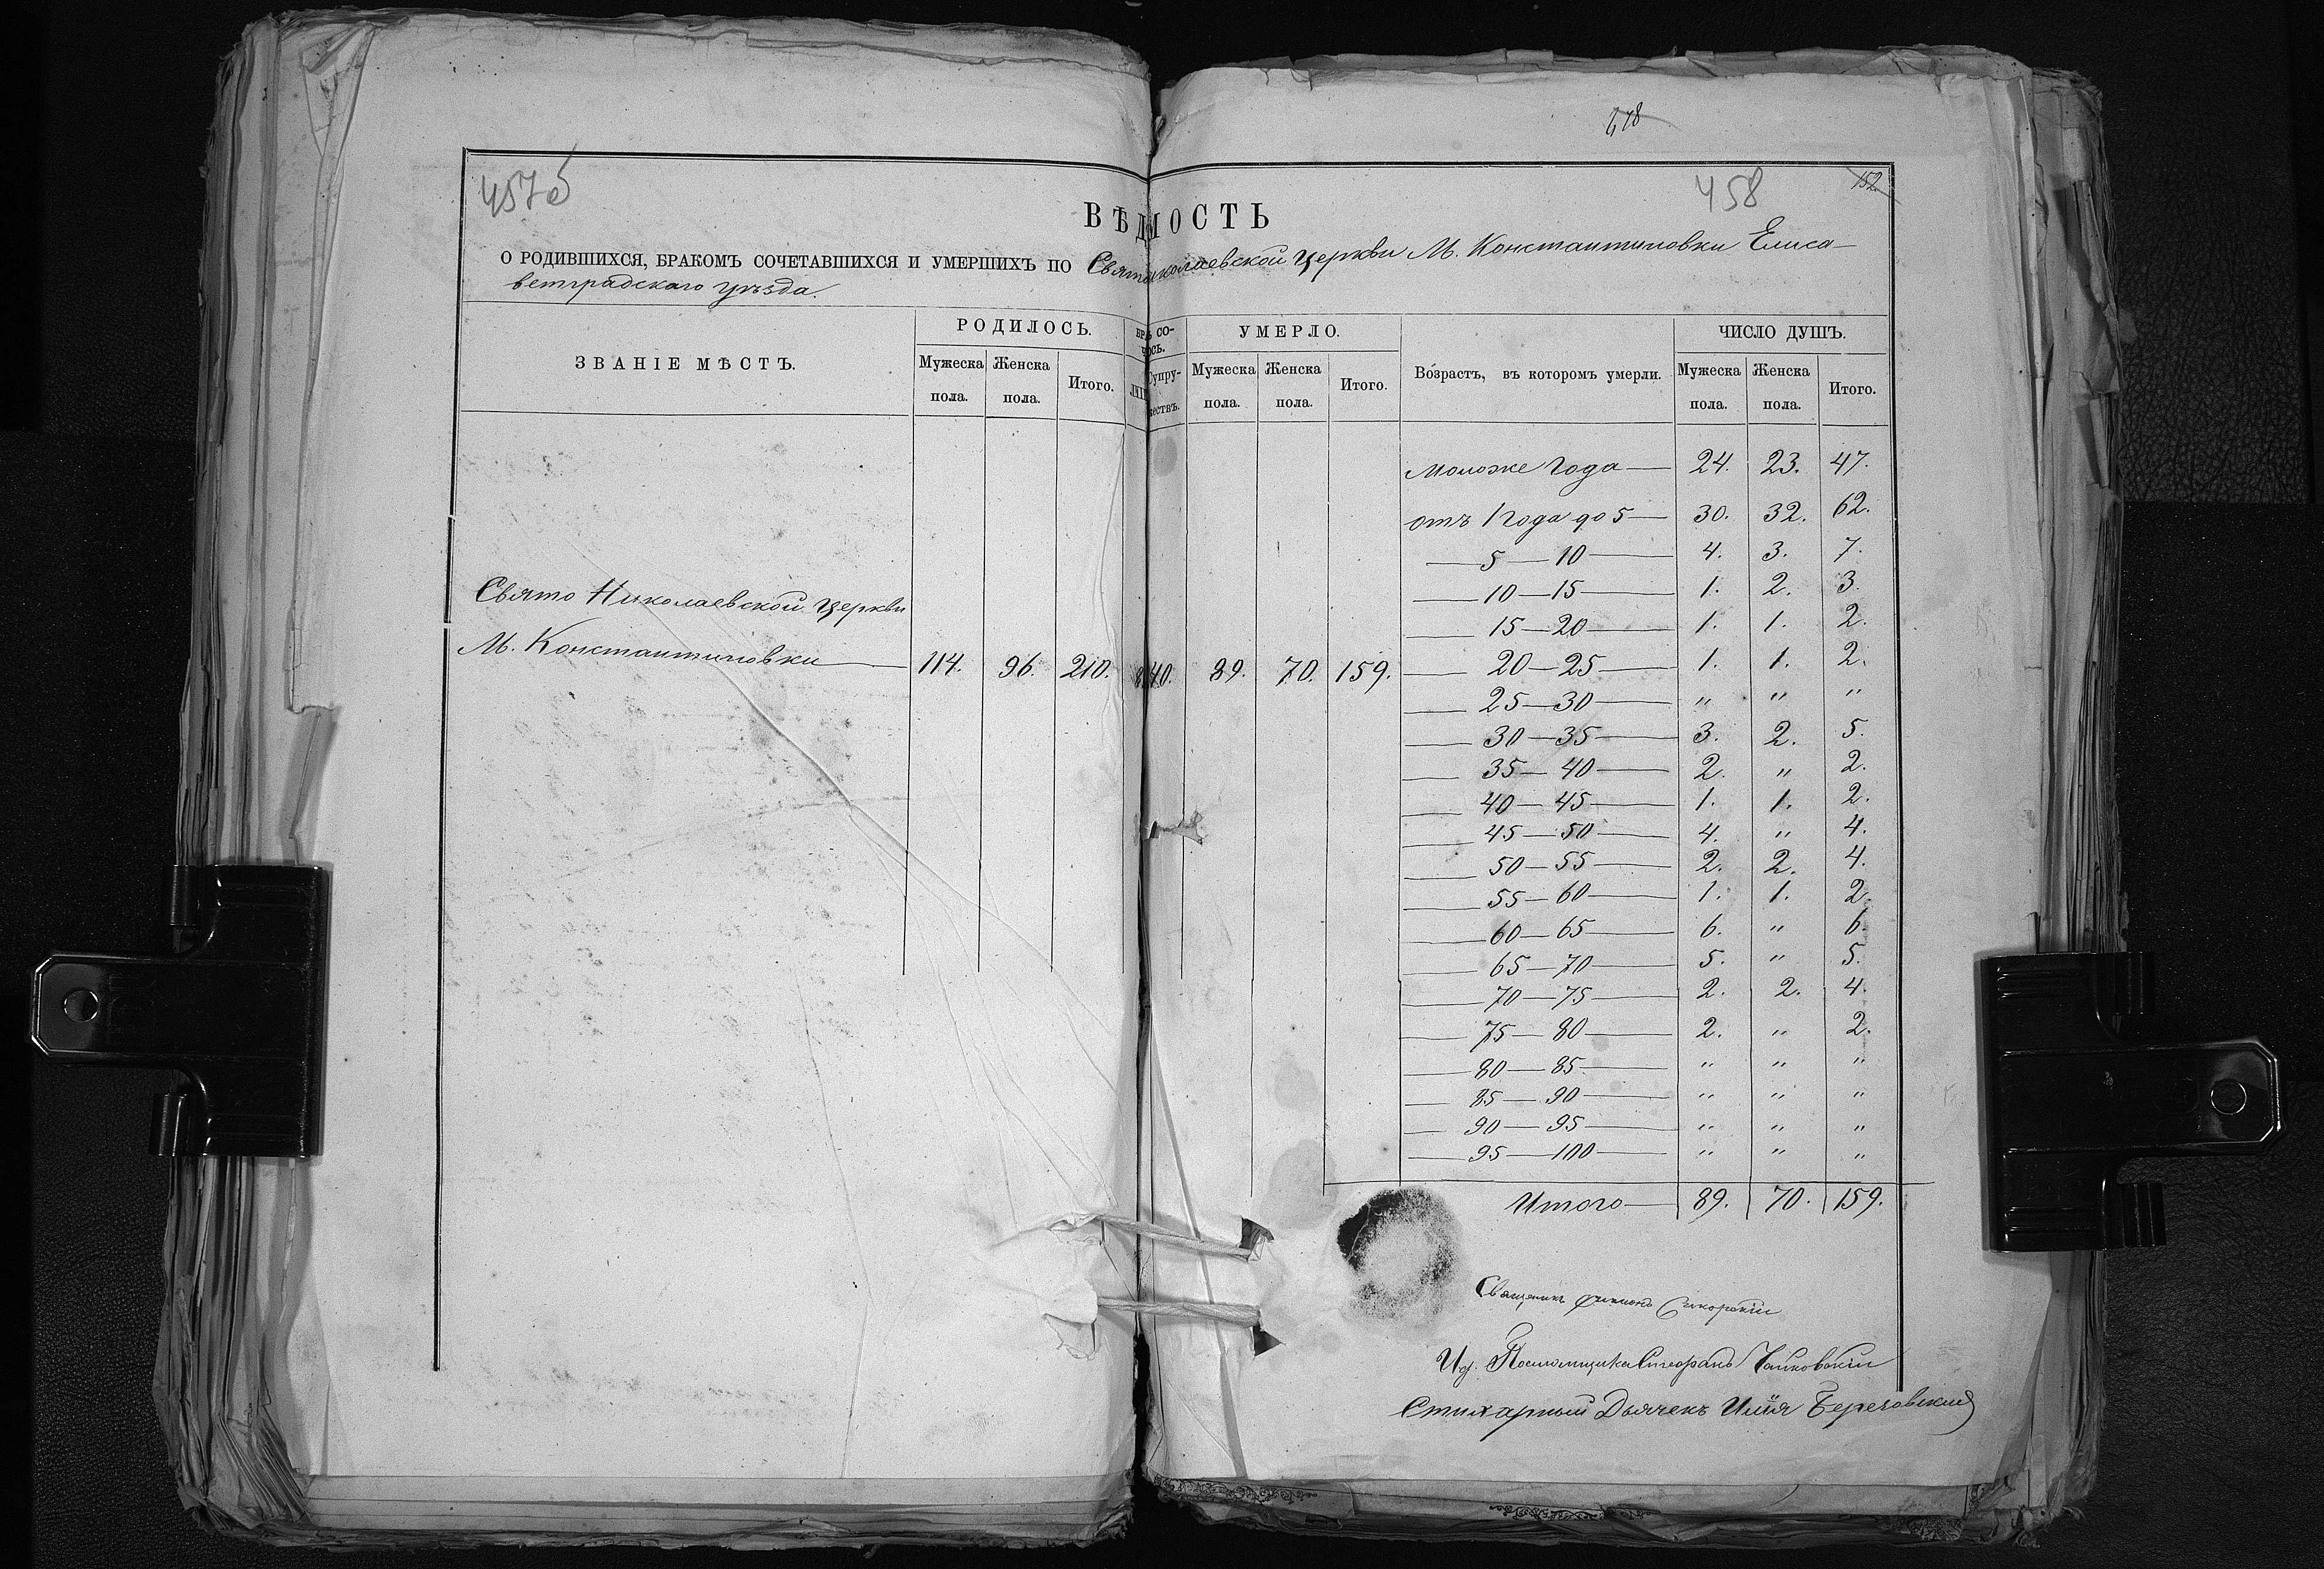 418
457об
458
152.
ВѢДМОСТЬ
О РОДИВШИХСЯ, БРАКОМЪ СОЧЕТАВШИХСЯ И УМЕРШИХЪ ПО Святониколаевской церкви М. Константиновки Елиса-
ветградскаго уѣзда.
ЗВАНІЕ МѢСТЪ.
РОДИЛОСЬ.
Мужеска пола.
Женска пола.
Итого.
УМЕРЛО.
Мужеска пола.
Женска пола.
Итого.
Возрастъ, въ которомъ умерли.
ЧИСЛО ДУШЪ.
Мужеска пола.
Женска пола.
Итого.
Свято Николаевской церкви
М. Константиновки — 114. 96. 210. 40. 89. 70. 159.
моложе года — 24. 23. 47.
отъ 1 года до 5 — 30. 32. 62.
— 5 — 10 — 4. 3. 7.
— 10 — 15 — 1. 2. 3.
— 15 — 20 — 1. 1. 2.
— 20 — 25 — 1. 1. 2.
— 25 — 30 — " " "
— 30 — 35 — 3. 2. 5.
— 35 — 40 — 2. " 2.
— 40 — 45 — 1. 1. 2.
— 45 — 50 — 4. " 4.
— 50 — 55 — 2. 2. 4.
— 55 — 60 — 1. 1. 2.
— 60 — 65 — 6. " 6.
— 65 — 70 — 5. " 5.
— 70 — 75 — 2. 2. 4.
— 75 — 80 — 2. " 2.
— 80 — 85 — " " "
— 85 — 90 — " " "
— 90 — 95 — " " "
— 95 — 100 — " " "
Итого — 89. 70. 159.
Священикъ Сикорскій
И. д. Псаломщика Стефанъ Чайковскій
Стихарный Дьячекъ Илія Березовскій